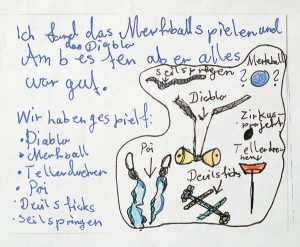 Ich fand das Merkballspielen und
das Diablo
Am besten aber alles
war gut.
Wir haben gespielt:
• Diablo
• Merkball
• Tellerdrehen
• Poi
• Devilsticks
• Seilspringen
seilspringen
Merkball
? ?
Diablo
Zirkus-
projekt
Tellerdre
hen
Poi
Devilsticks